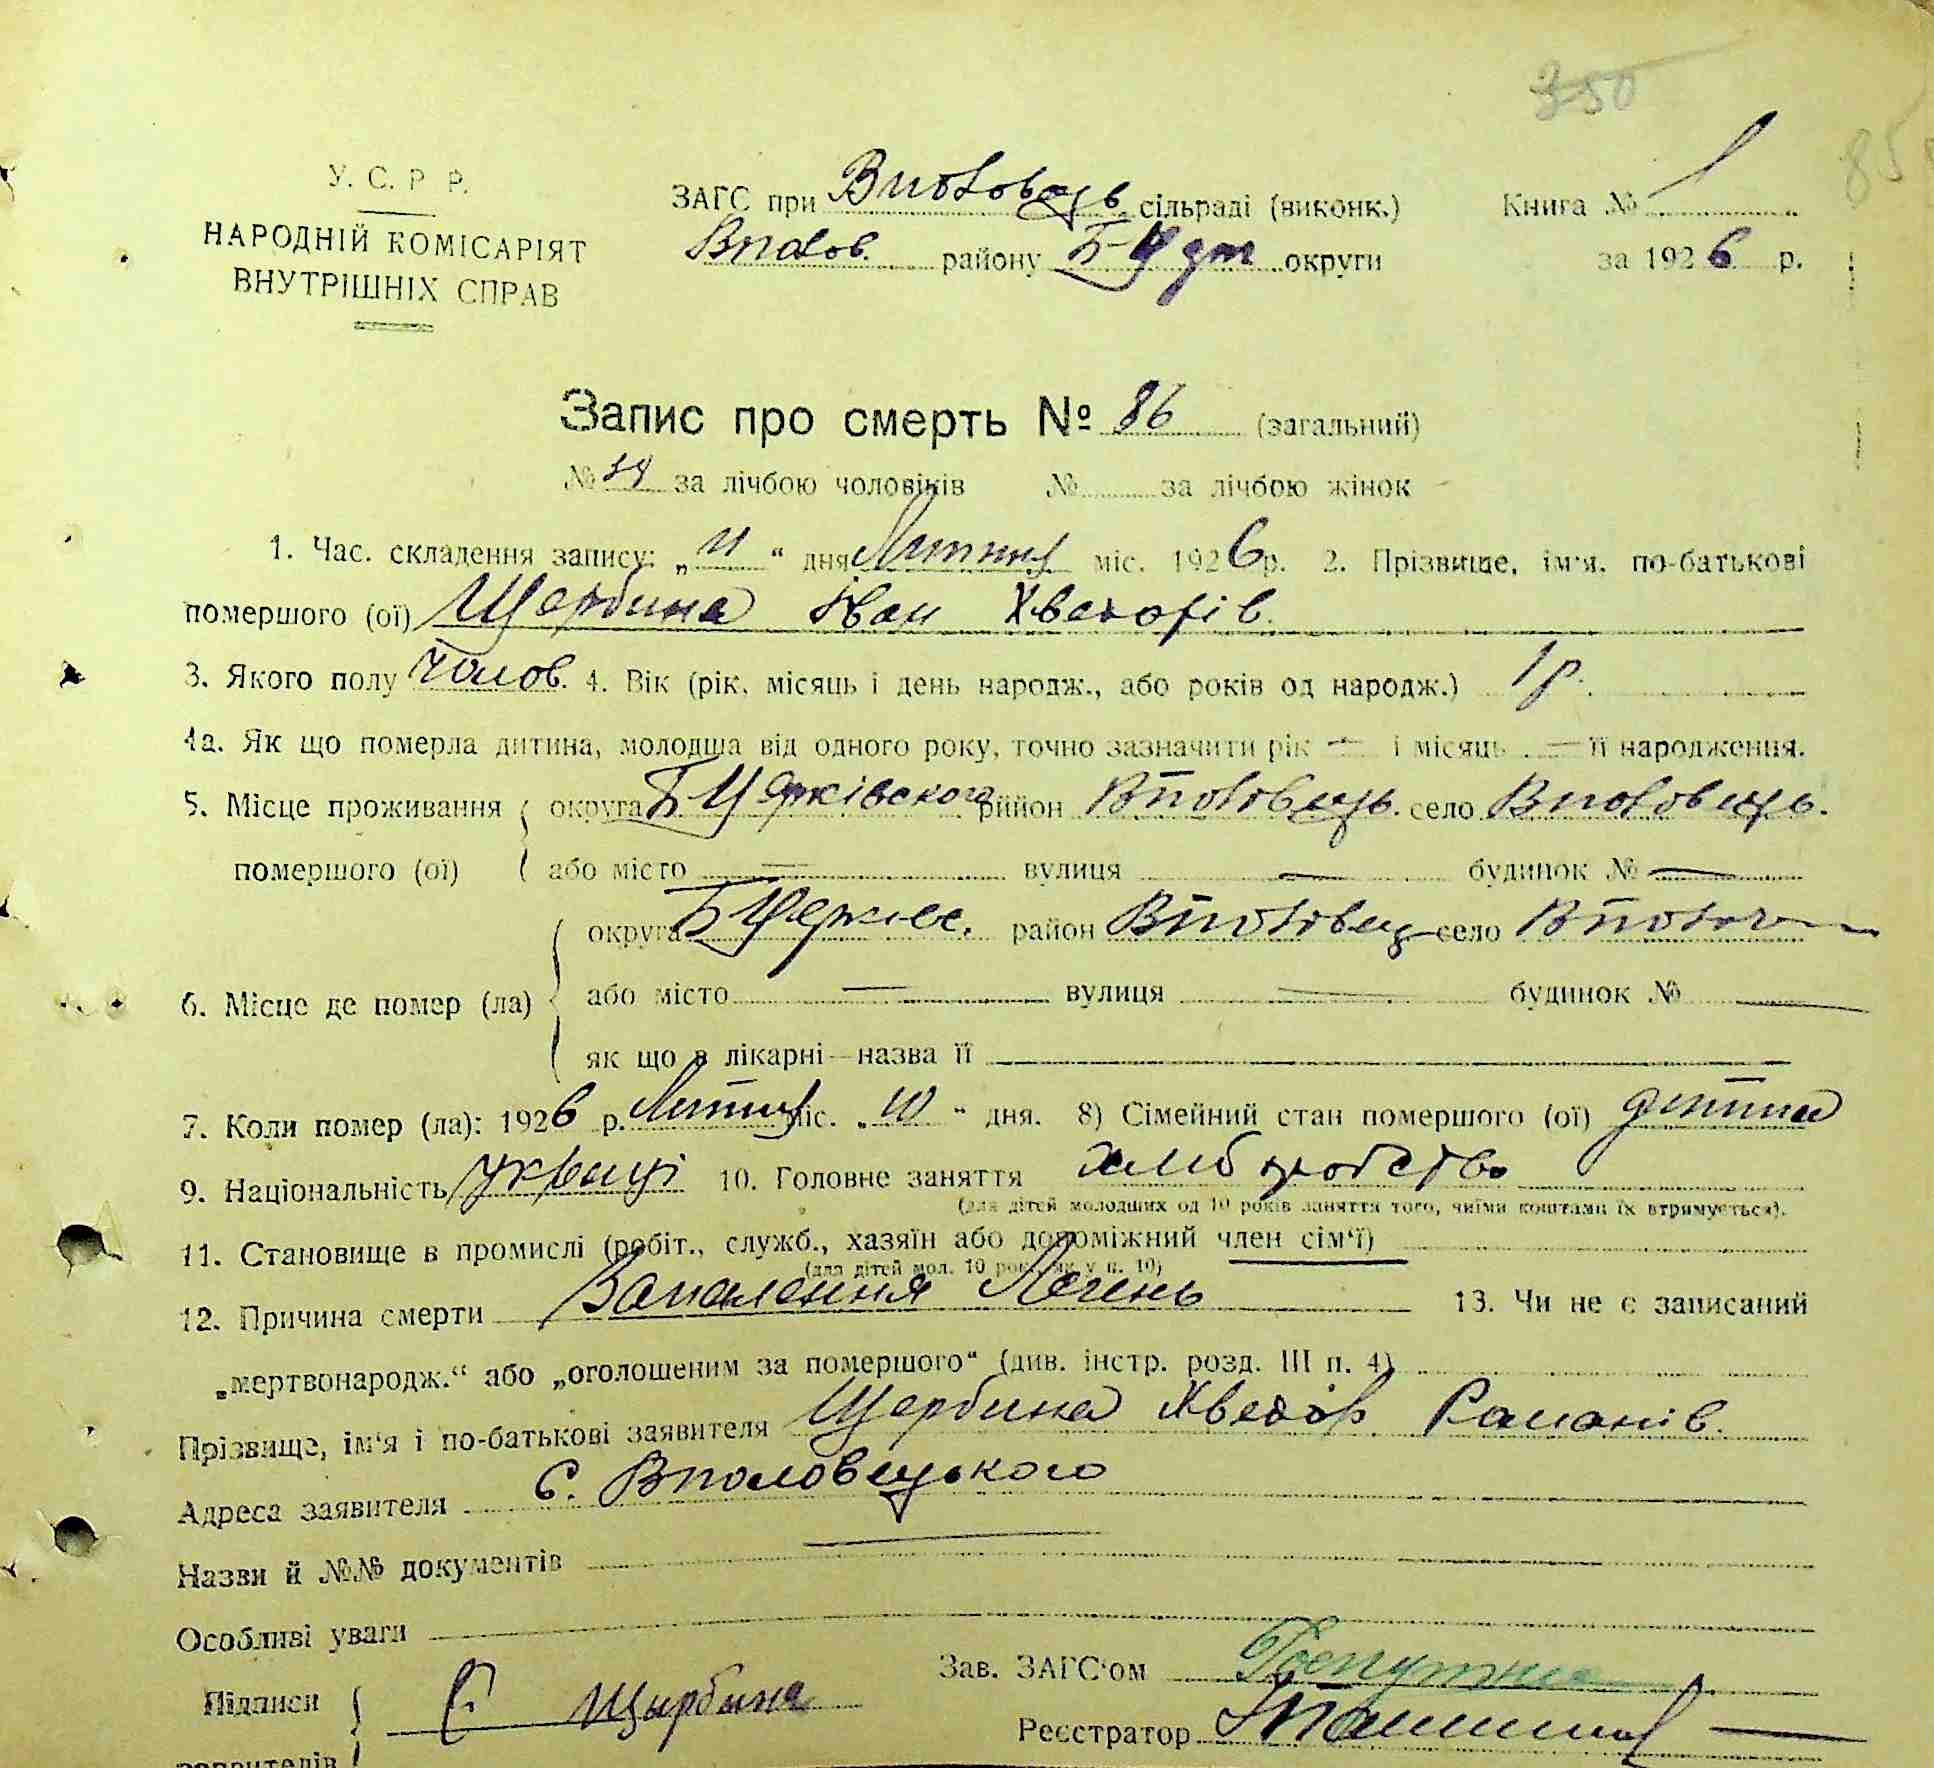 350
85
У. С. Р Р.
НАРОДНІЙ КОМІСАРІЯТ
ВНУТРІШНІХ СПРАВ
ЗАГС при Вполовець. сільраді (виконк.)
Вполов. району Б-Ц округи
Книга № 1
за 1926 р.
Запис про смерть № 86 (загальний)
№ за лічбою чоловіків № за лічбою жінок
1. Час. складення запису: „11“ дня Лютий міс. 1926 р. 2. Прізвище, ім‘я, по-батькові
помершого (ої) Щербина Іван Хведорів.
3. Якого полу чолов. 4. Вік (рік, місяць і день народж., або років од народж.) 1 р.
4а. Як що померла дитина, молодша від одного року, точно зазначити рік — і місяць — її народження.
5. Місце проживання округа Б Церківського район Вполовець. село Вполовець.
помершого (ої) або місто — вулиця — будинок № —
округа Б Церков. район Вполовец село
6. Місце де помер (ла) або місто — вулиця — будинок № —
як що в лікарні—назва її
7. Коли помер (ла): 1926 р. Лютий міс. „10“ дня. 8) Сімейний стан помершого (ої) дитина
9. Національність україці 10. Головне заняття хліборобство
(для дітей молодших од 10 років заняття того, чиїми коштами їх втримується).
11. Становище в промислі (робіт., служб., хазяїн або допоміжний член сім‘ї) —
(для дітей мол. 10 рок. як у п. 10)
12. Причина смерти Запалення Легень 13. Чи не є записаний
„мертвонародж.“ або „оголошеним за помершого“ (див. інстр. розд. III п. 4)
Прізвище, ім‘я і по-батькові заявителя Щербина Хведір Романів.
Адреса заявителя С. Вполовецького
Назви й №№ документів —
Особливі уваги
Зав. ЗАГС‘ом
Підписи Щирбина
Реєстратор
заявителів